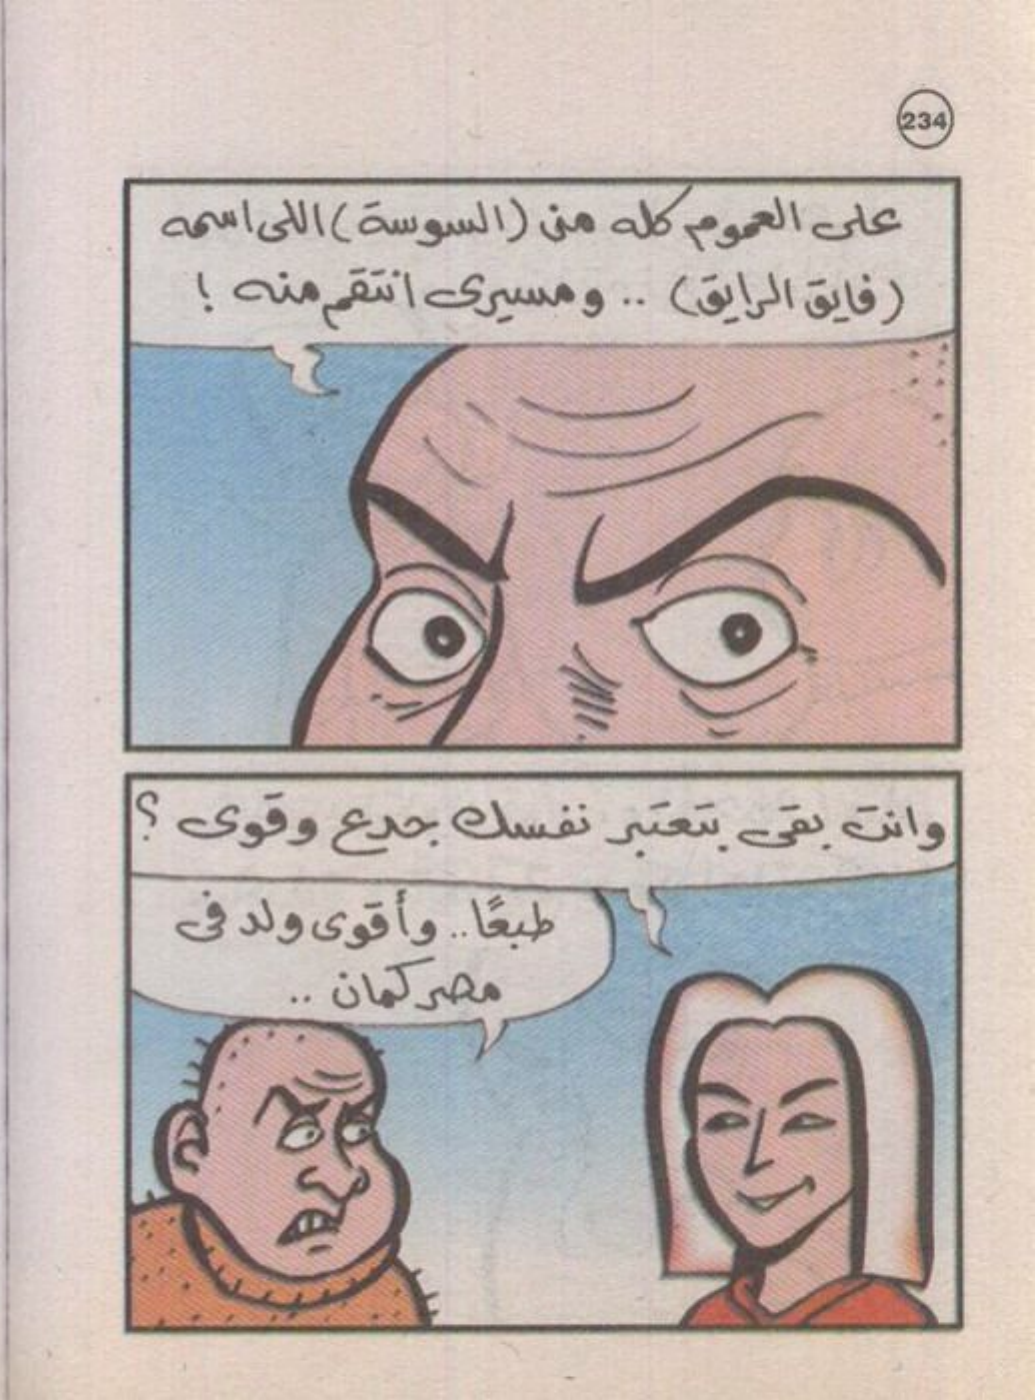 234
على العموم كله من (السوسة) اللى اسمه
(فايق الرايق) .. ومسيرى انتقم منه !
وانت بقى بتعتبر نفسك جدع وقوى ؟
طبعًا .. وأقوى ولد فى
مصر كمان ..